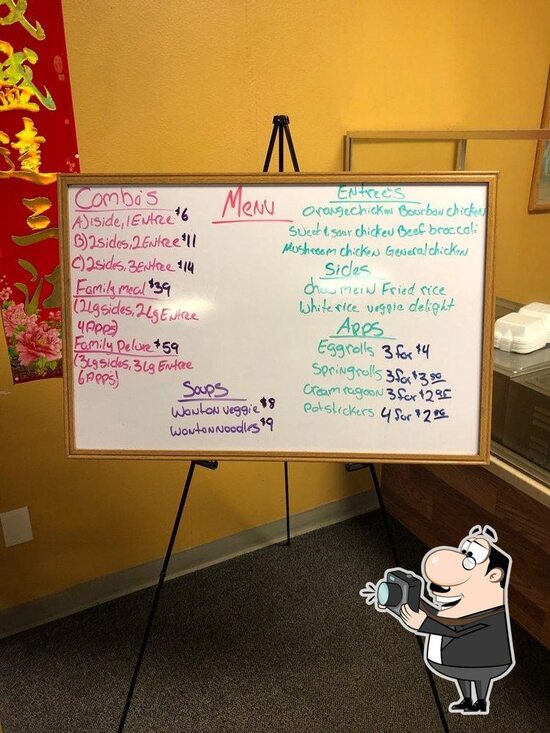 Menu
Combo's
A) 1 side, 1 Entree $6
B) 2 sides, 2 Entree $11
C) 2 sides, 3 Entree $14
Family meal $39
(2 Lg sides, 2 Lg Entree
4 Apps)
Family Deluxe $59
(3 Lg sides, 3 Lg Entree
6 Apps)
Soups
Wonton veggie $8
Wonton noodles $9
Entree's
Orange Chicken Bourbon chicken
Sweet & sour chicken Beef broccoli
Mushroom chicken General chicken
Sides
Chow mein Fried rice
White rice veggie delight
Apps
Eggrolls 3 for $4
Springrolls 3 for $3.50
Cream ragoon 3 for $2.95
Potstickers 4 for $2.86